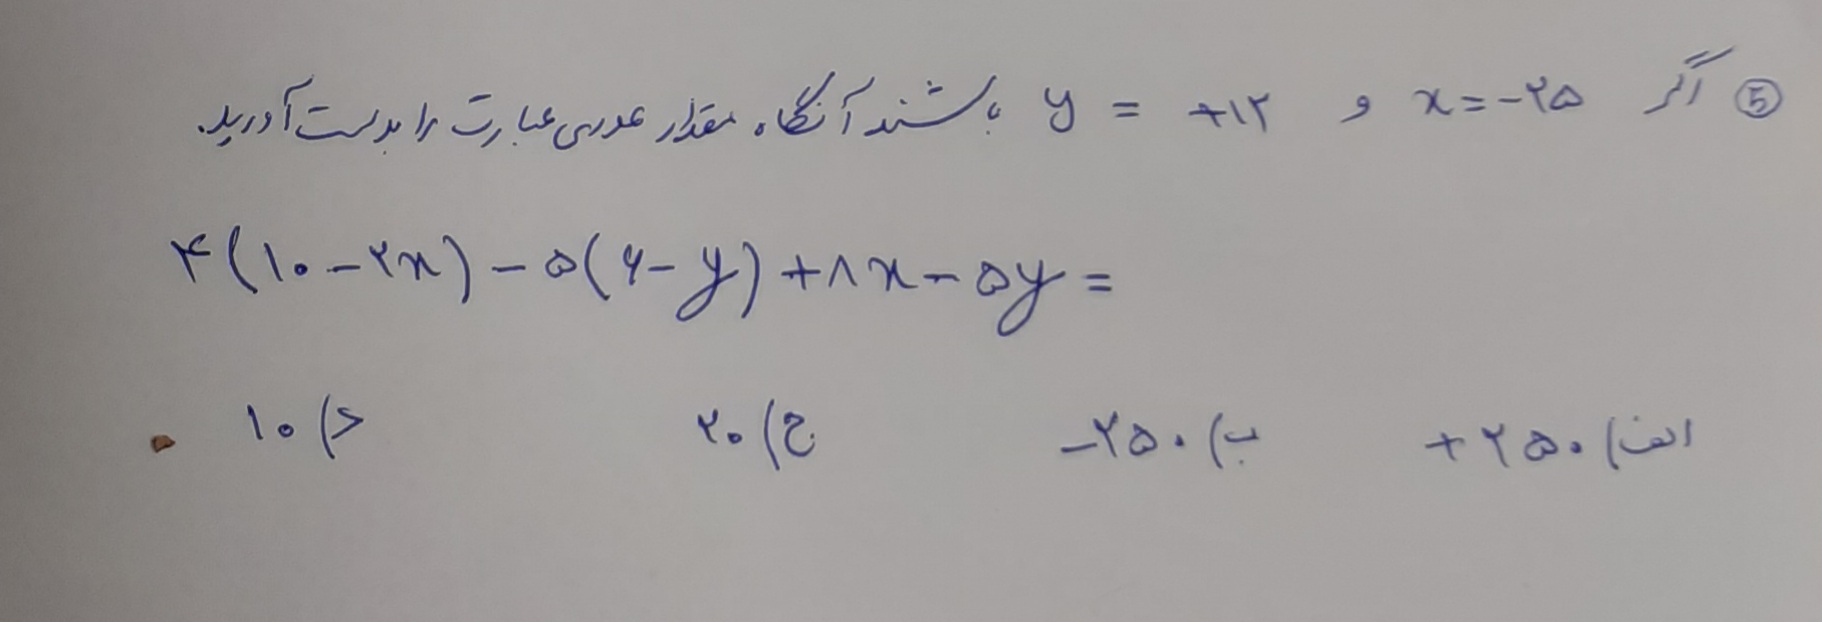 ⑤ اگر x = -۲۵ و y = +۱۲ باشند آنگاه مقدار عددی عبارت را بدست آورید.
۴(۱۰ - ۲x) - ۵(۶ - y) + ۸x - ۵y =
الف) +۲۵۰ ب) -۲۵۰ ج) ۲۰ د) ۱۰